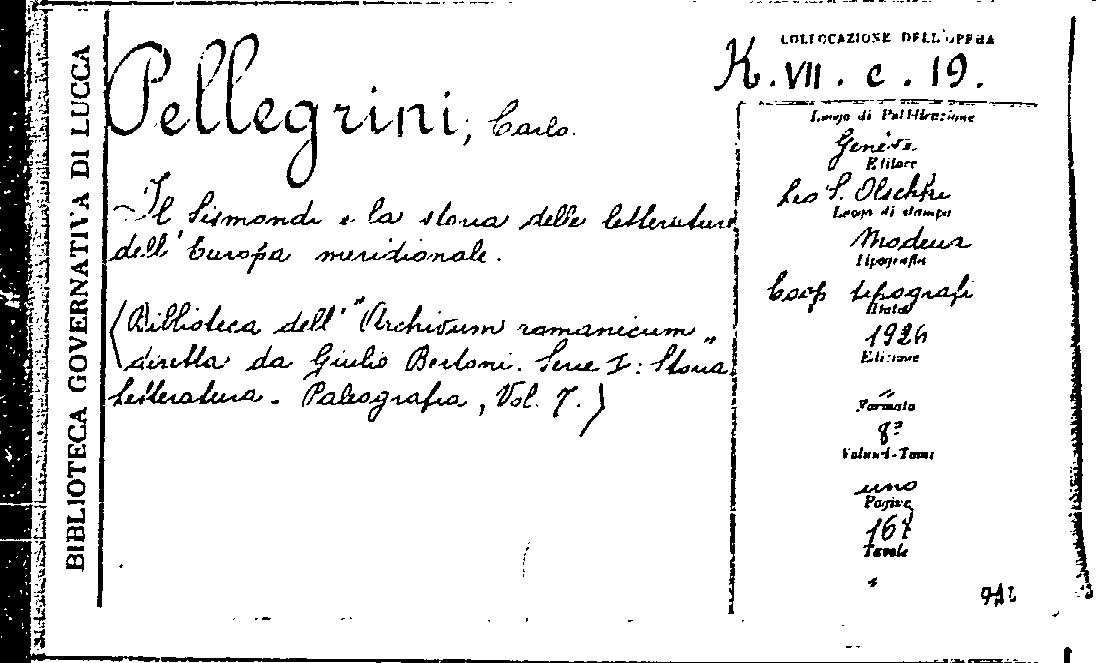 BIBLIOTECA GOVERNATIVA DI LUCCA
Pellegrini, Carlo.
Il Sismondi e la storia delle letterature
dell'Europa meridionale.
(Biblioteca dell'"Archivum romanicum"
diretta da Giulio Bertoni. Serie I: Storia
Letteratura - Paleografia, Vol. 7.)
COLLOCAZIONE DELL'OPERA
K. VII. c. 19.
Luogo di Pubblicazione
Genève
Editore
Leo S. Olschki
Luogo di stampa
Modena
Tipografia
Coop tipografi
Data
1926
Edizione
"
Formato
8°
Volumi-Tomi
uno
Pagine
167
Tavole
"